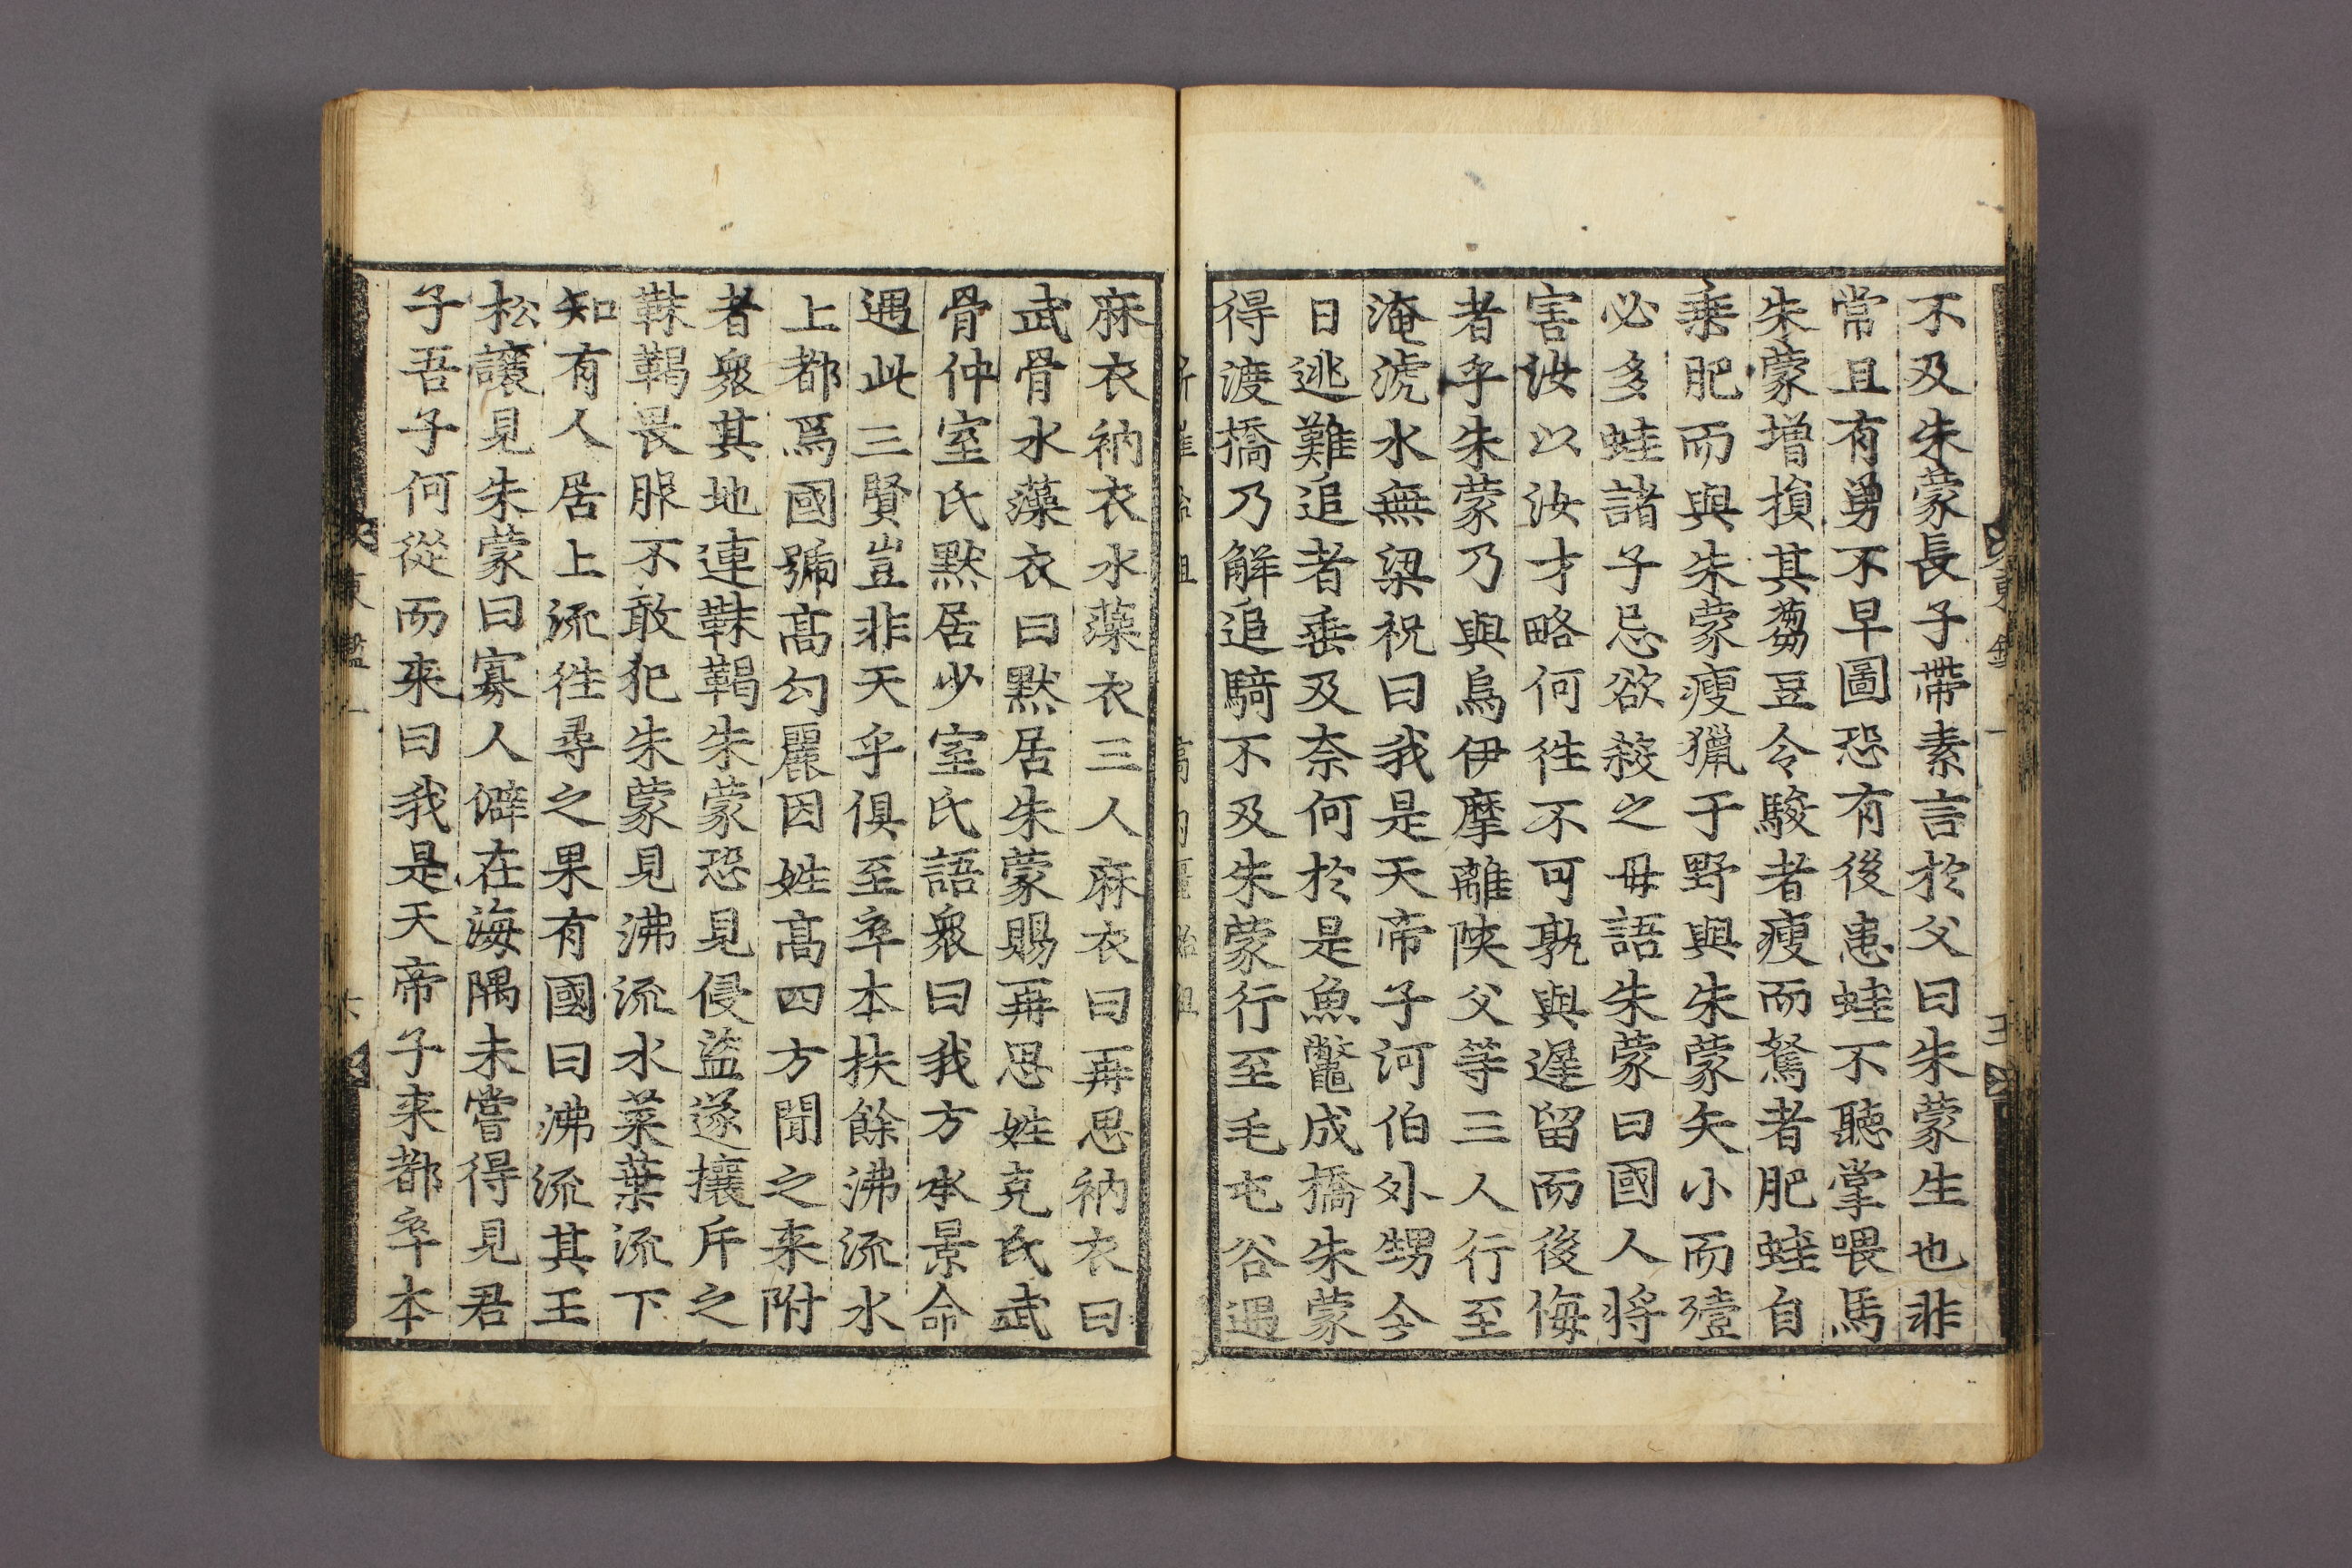 不及朱蒙長子帶素言於父曰朱蒙生也非
常且有勇不早圖恐有後患蛙不聽掌喂馬
朱蒙増損其蒭豆令駿者瘦而駑者肥蛙自
乗肥而與朱蒙瘦獵于野與朱蒙矢小而殪
必多蛙諸子忌欲殺之毋語朱蒙曰國人将
害汝以汝才略何徃不可孰與遅留而後悔
者乎朱蒙乃與烏伊摩離陜父等三人行至
淹淲水無梁祝曰我是天帝子河伯外甥今
日逃難追者垂及奈何於是魚鼈成橋朱蒙
得渡橋乃解追騎不及朱蒙行至毛屯谷遇
麻衣衲衣水藻衣三人麻衣曰再思衲衣曰
武骨水藻衣曰黙居朱蒙賜再思姓克氏武
骨仲室氏黙居少室氏語衆曰我方承景命
遇此三賢豈非天乎俱至卒本扶餘沸流水
上都爲國號髙勾麗因姓髙四方聞之来附
者衆其地連靺鞨朱蒙恐見侵盗遂攘斥之
靺鞨畏服不敢犯朱蒙見沸流水菜葉流下
知有人居上流徃尋之果有國曰沸流其王
松讓見朱蒙曰寡人僻在海隅未嘗得見君
子吾子何從而来曰我是天帝子来都卒本